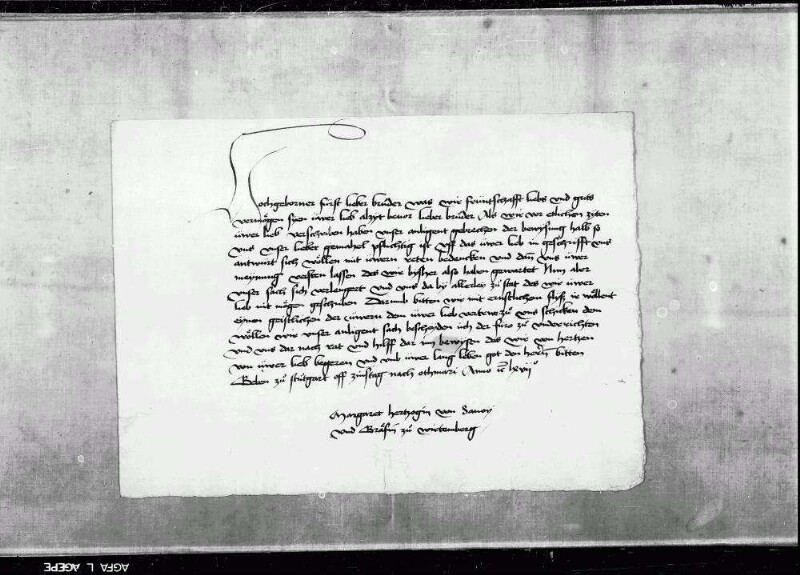 Hochgeborner fürst lieber brüder was wir früntschafft liebs vnd guts
vermögen syen üwer lieb alzyt beuor lieber brüder Als wir vor etlichen zyten
üwer lieb verschriben haben vnser anligent gebrechen der bewysung halb so
vns vnser lieber gemahel pflichtig ist vff das üwer lieb in geschrifft vns
antwurt sich wöllen mit üwern reten bedencken vnd dan̄ vns üwer
meynung versten lassen des wir bisher also haben gewartet Nun aber
vnser sach sich verlengert vnd vns da by allerley zu stat des wir üwer
lieb nit mögen geschriben Darumb bitten wir mit ernstlichem flyß ir wöllent
eynen geistlichen der üwern dem üwer lieb vertruw zu vns schicken dem
wöllen wir vnser anligent sach bescheiden üch der füro zu vnderrichten
vnd vns dar nach rat vnd hilff dar inn bewysen das wir von hertzen
von üwer lieb begeren vnd vmb üwer lang leben got den hern̄ bitten
Geben zu stütgart vff zinstag nach othmari Anno lxvii
Margaret hertzogin von Sauoy
vnd Gräfin zu wirtemberg
AGFA L AGEPE